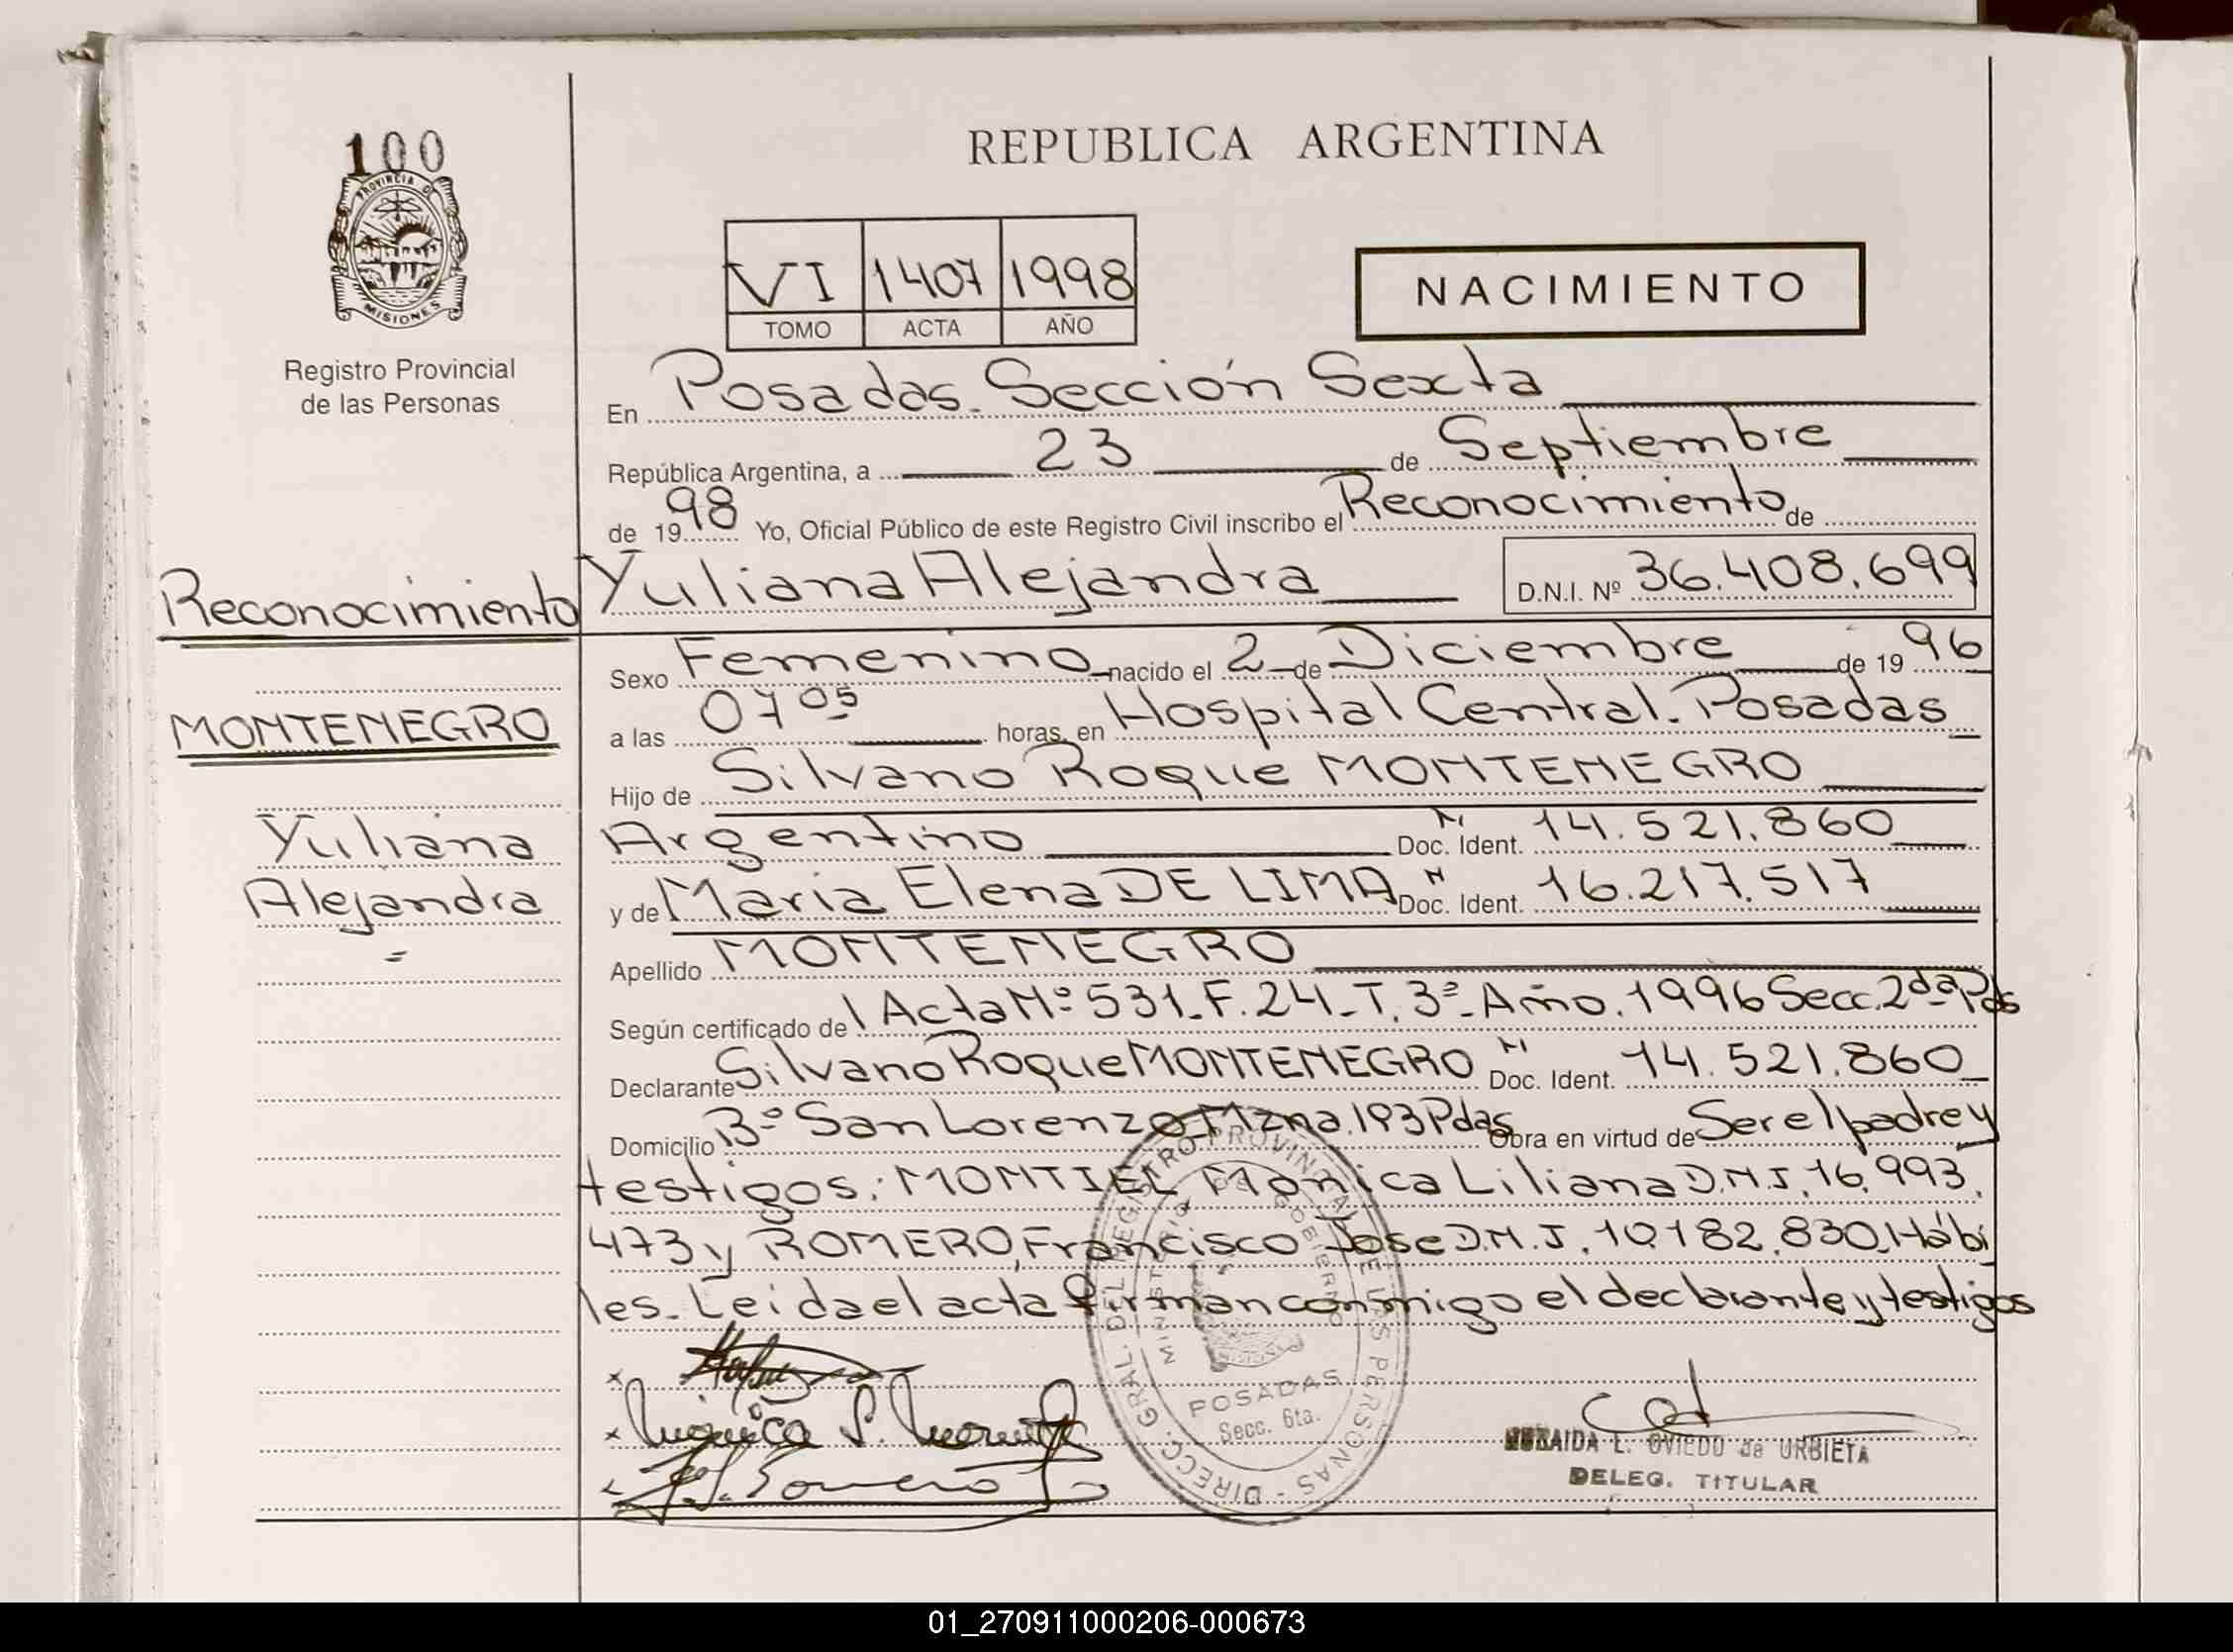 100
PROVINCIA DE
MISIONES
Registro Provincial
de las Personas
REPUBLICA ARGENTINA
VI 1407 1998
TOMO ACTA AÑO
NACIMIENTO
En Posadas. Sección Sexta
República Argentina, a 23 de Septiembre
de 1998 Yo, Oficial Público de este Registro Civil inscribo el Reconocimiento de
Reconocimiento
Yuliana Alejandra D.N.I. Nº 36.408.699
Sexo Femenino nacido el 2 de Diciembre de 1996
MONTENEGRO
a las 07 05 horas, en Hospital Central. Posadas
Hijo de Silvano Roque MONTENEGRO
Yuliana
Argentino Doc. Ident. N 14.521.860
Alejandra
y de Maria Elena DE LIMA Doc. Ident. N 16.217.517
=
Apellido MONTENEGRO
Según certificado de l Acta Nº 531_F.24_T.3º_Año.1996 Secc.2da Pdas
Declarante Silvano Roque MONTENEGRO Doc. Ident. N 14.521.860
Domicilio Bº San Lorenzo Mzna.193 Pdas Obra en virtud de Ser el padre y
testigos: MONTIEL Monica Liliana D.N.I. 16.993.
473 y ROMERO, Francisco Jose D.N.I. 10.182.830. Hábi
les. Leida el acta firman conmigo el declarante y testigos
DIRECC. GRAL. DEL REGISTRO PROVINCIAL DE LAS PERSONAS -
MINISTERIO DE GOBIERNO
POSADAS
Secc. 6ta.
L. OVIEDO de URBIETA
DELEG. TITULAR
01_270911000206-000673